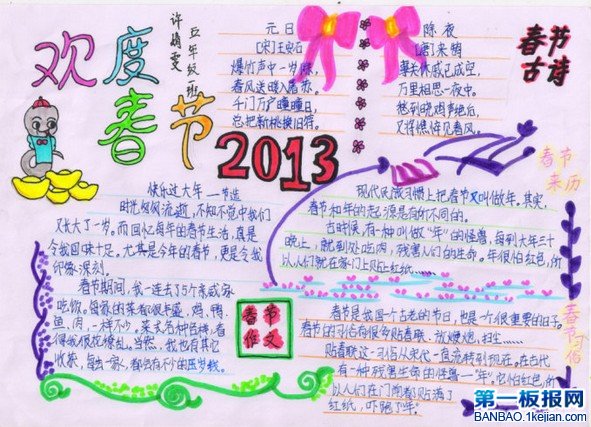 欢度
春节
2013
五年级一班
许婧雯
元日
[宋]王安石
爆竹声中一岁除,
春风送暖入屠苏。
千门万户曈曈日,
总把新桃换旧符。
除夜
[唐]来鹄
事关休戚已成空,
万里相思一夜中。
愁到晓鸡声绝后,
又将憔悴见春风。
春节
古诗
快乐过大年 一节选
时光匆匆流逝,不知不觉中我们
又长大了一岁。而回忆每年的春节生活,真是
令我回味十足。尤其是今年的春节,更是令我
印象深刻。
春节期间,我一连去了5个亲戚家
吃饭。每家的菜都很丰盛,鸡、鸭、
鱼、肉,一样不少,菜式各种各样,看
得我眼花缭乱。当然,我也有其它
收获,每去一家,都会有不少的压岁钱。
春节
作文
春节
来历
现代民俗习惯上把春节又叫做年。其实,
春节和年的起源是有所不同的。
古时候,有一种叫做“年”的怪兽,每到大年三十
晚上,就到处吃肉,残害人们的生命。年很怕红色,所
以人们就在家门上贴上红纸……
春节
习俗
春节是我国一个古老的节日,也是一个很重要的日子。
春节的习俗有很多贴春联、放鞭炮、扫尘……
贴春联这一习俗从宋代一直流转到现在。在古代
有一种残害生命的怪兽—“年”。它怕红色,所
以人们在门前都贴满了
红纸,吓跑了“年”。
第一板报网
BANBAO.1kejian.com